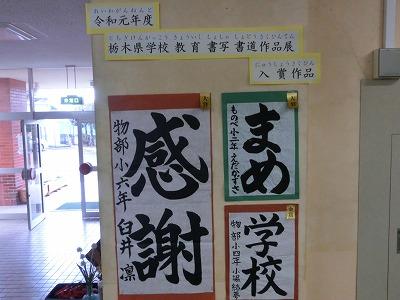 れいわがんねんど
令和元年度
とちぎけんがっこう きょういく しょしゃ しょどうさくひんてん
栃木県学校 教育 書写 書道作品展
にゅうしょうさくひん
入賞作品
感謝
物部小六年 臼井 凛
まめ
ものべ小二年
学校
物部小四年